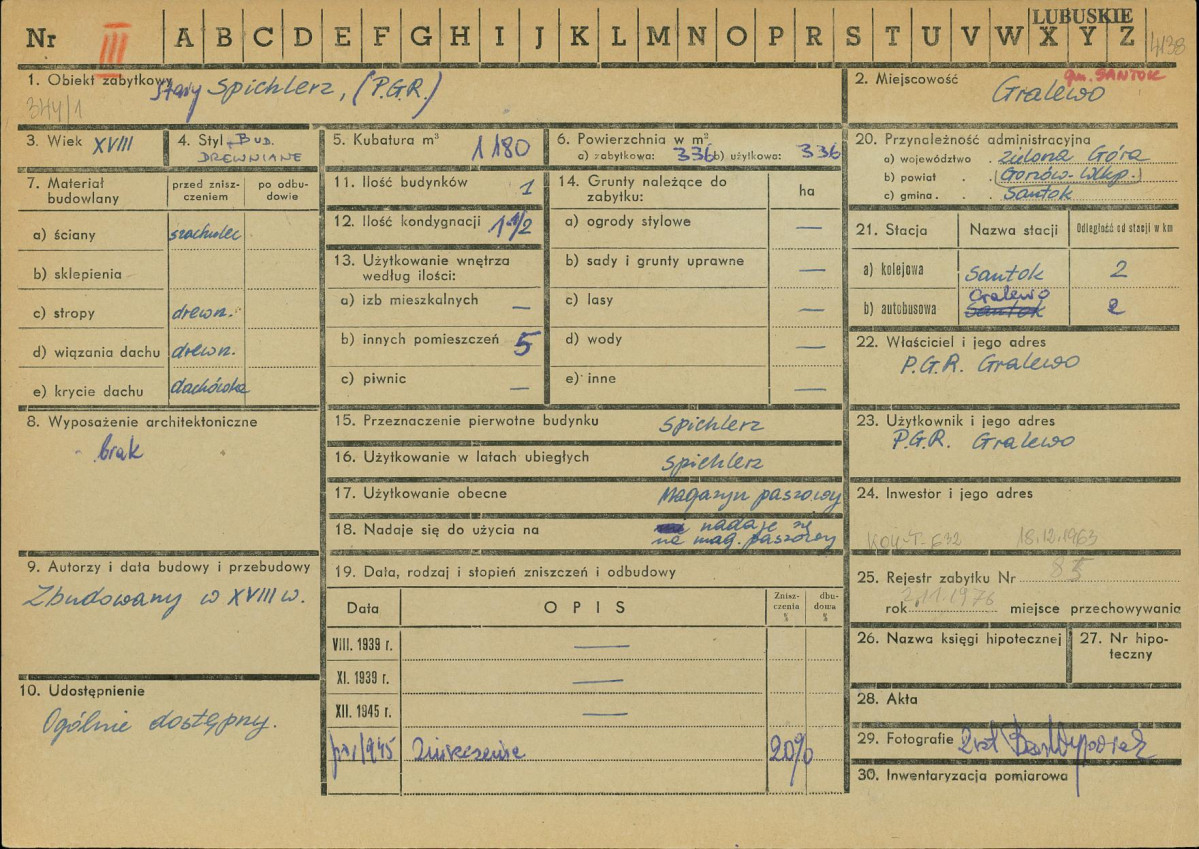 LUBUSKIE
Nr III A B C D E F G H I J K L M N O P R S T U V W X Y Z 4138
1. Obiekt zabytkowy Stary Spichlerz, (P.G.R.)
344/1
2. Miejscowość gm. SANTOK
Gralewo
3. Wiek XVIII
4. Styl BUD.
DREWNIANE
5. Kubatura m³ 1180
6. Powierzchnia w m²
a) zabytkowa: 336 b) użytkowa: 336
7. Materiał budowlany
przed znisz-
czeniem
po odbu-
dowie
a) ściany szachulec
b) sklepienia
c) stropy drewn.
d) wiązania dachu drewn.
e) krycie dachu dachówka
8. Wyposażenie architektoniczne
brak
9. Autorzy i data budowy i przebudowy
Zbudowany w XVIII w.
10. Udostępnienie
Ogólnie dostępny.
11. Ilość budynków 1
12. Ilość kondygnacji 1 1/2
13. Użytkowanie wnętrza
według ilości:
a) izb mieszkalnych —
b) innych pomieszczeń 5
c) piwnic —
14. Grunty należące do
zabytku:
ha
a) ogrody stylowe —
b) sady i grunty uprawne —
c) lasy —
d) wody —
e) inne —
15. Przeznaczenie pierwotne budynku spichlerz
16. Użytkowanie w latach ubiegłych spichlerz
17. Użytkowanie obecne Magazyn paszowy
18. Nadaje się do użycia na nadaje się
na mag. paszowy
19. Data, rodzaj i stopień zniszczeń i odbudowy
Data OPIS
Znisz-
czenia
%
dbu-
dowa
%
VIII. 1939 r. —
XI. 1939 r. —
XII. 1945 r. —
po/1945 zniszczenie 20%
20. Przynależność administracyjna
a) województwo . zielona Góra
b) powiat . . (Gorzów-Wlkp.)
c) gmina . . . Santok
21. Stacja Nazwa stacji Odległość od stacji w km
a) kolejowa Santok 2
Gralewo
b) autobusowa Santok 2
22. Właściciel i jego adres
P.G.R. Gralewo
23. Użytkownik i jego adres
P.G.R. Gralewo
24. Inwestor i jego adres
18.12.1963
25. Rejestr zabytku Nr 85
rok 2.11.1976 miejsce przechowywania
26. Nazwa księgi hipotecznej
27. Nr hipo-
teczny
28. Akta
29. Fotografie
30. Inwentaryzacja pomiarowa